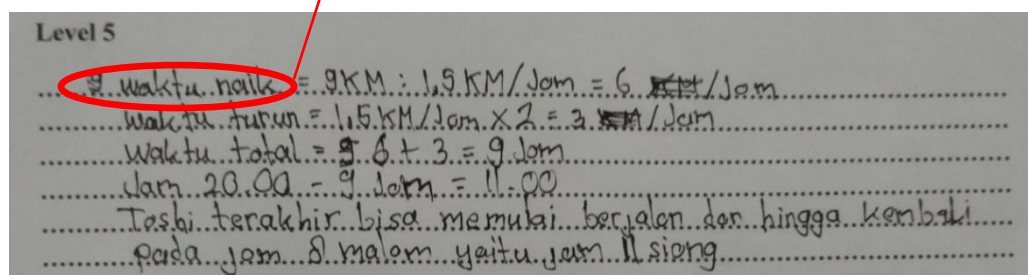 Level 5
waktu naik = 9KM : 1,5 KM/Jam = 6 /Jam
Waktu turun = 1,5 KM/Jam x 2 = 3 /Jam
Waktu total = 6 + 3 = 9 Jam
Jam 20.00 - 9 Jam = 11.00
Toshi terakhir bisa memulai berjalan dan hingga kembali
pada jam 8 malam yaitu jam 11 siang